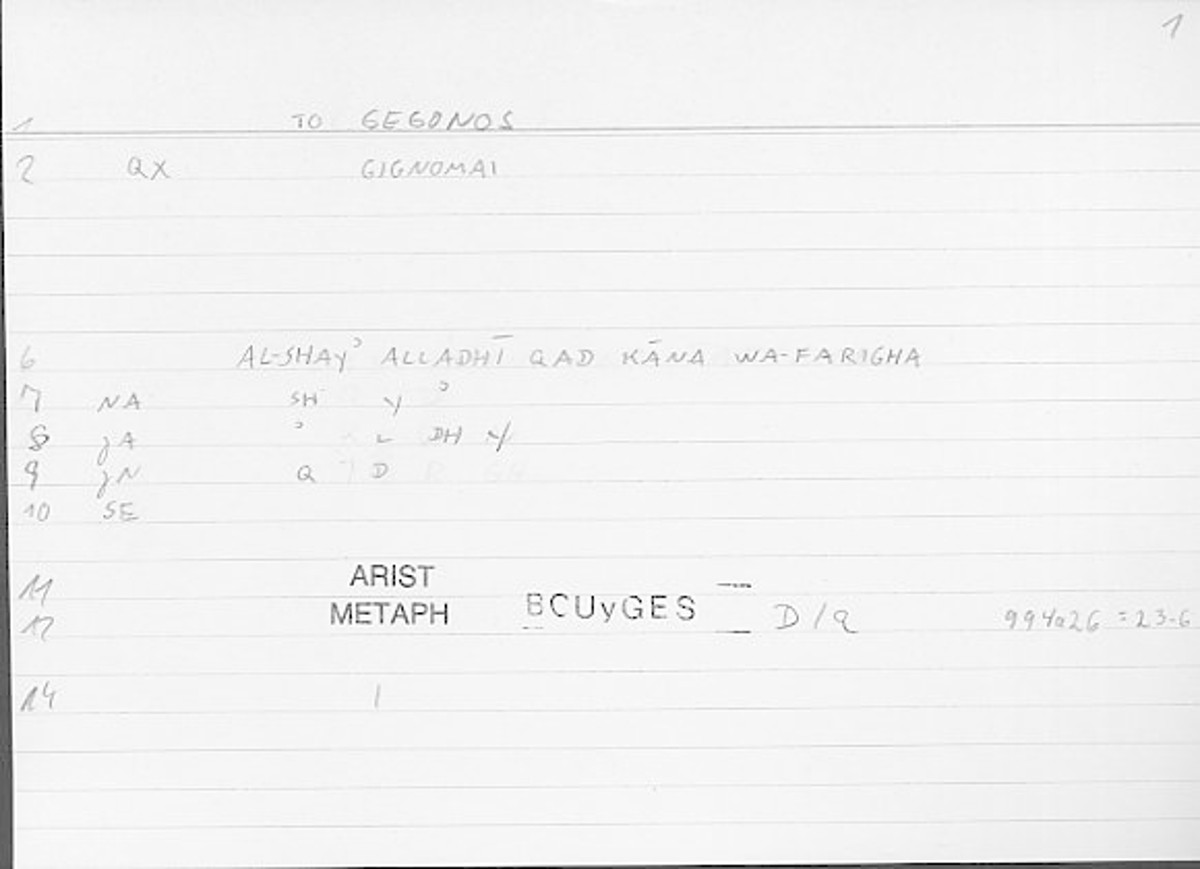 1
1 TO GEGONOS
2 QX GIGNOMAI
6 AL-SHAYʾ ALLADHĪ QAD KĀNA WA-FARIGHA
7 NA SH Y ʾ
8 JA ʾ L DH Y
9 JN Q D
10 SE
11 ARIST
12 METAPH BCUyGES D/a 994a26 = 23-6
14 1